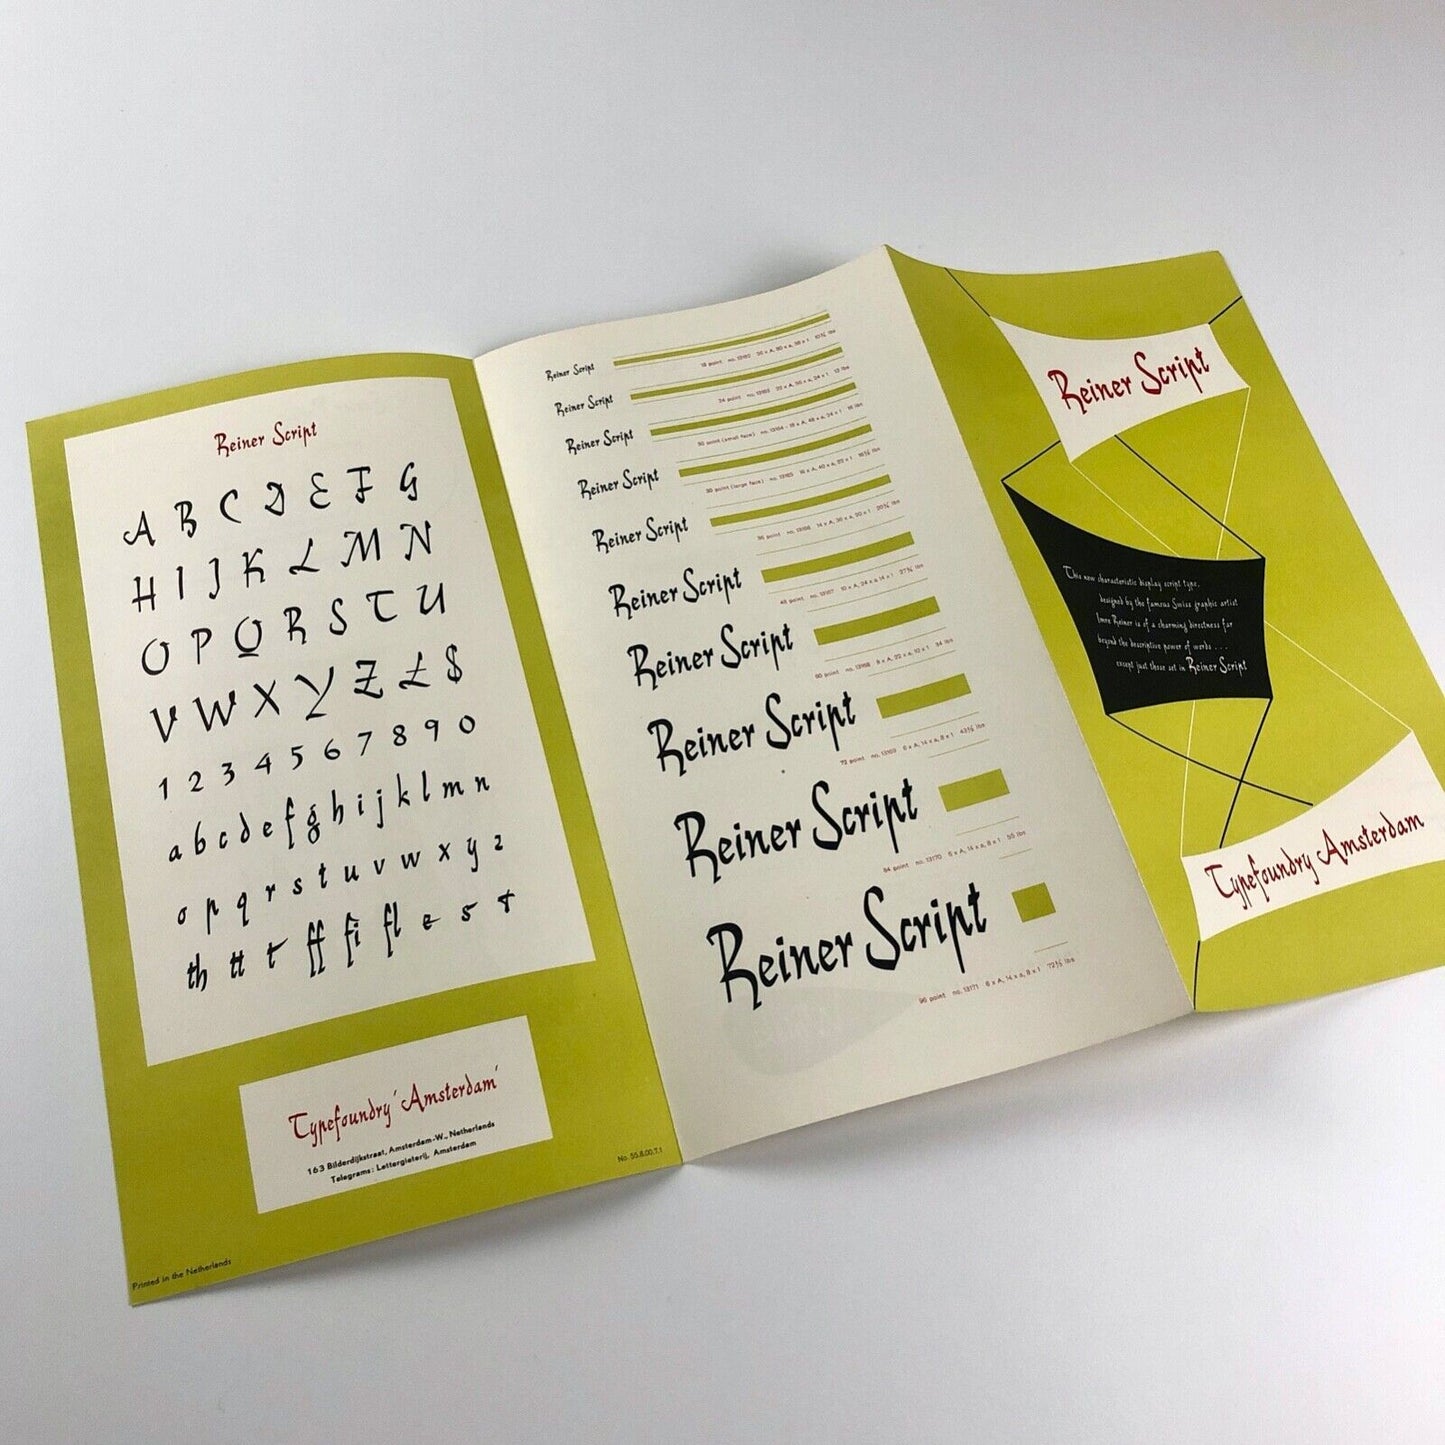 Reiner Script
A B C D E F G
H I J K L M N
O P Q R S T U
V W X Y Z £ $
1 2 3 4 5 6 7 8 9 0
a b c d e f g h i j k l m n
o p q r s t u v w x y z
th tt t ff fi fl e s t
Typefoundry 'Amsterdam'
163 Bilderdijkstraat, Amsterdam-W., Netherlands
Telegrams: Lettergieterij, Amsterdam
Printed in the Netherlands
No. 55.8.00.7.1
Reiner Script
18 point no. 13162
Reiner Script
24 point no. 13163
Reiner Script
30 point (small face) no. 13164
Reiner Script
30 point (large face) no. 13165
Reiner Script
36 point no. 13166 14 x A, 36 x a, 20 x 1
Reiner Script
48 point no. 13167 10 x A, 24 x a, 14 x 1
Reiner Script
60 point no. 13168 8 x A, 22 x a, 10 x 1 34 lbs
Reiner Script
72 point no. 13169 6 x A, 14 x a, 8 x 1
Reiner Script
84 point no. 13170 6 x A, 14 x a, 8 x 1 55 lbs
Reiner Script
96 point no. 13171 6 x A, 14 x a, 8 x 1
Reiner Script
This new characteristic display script type,
designed by the famous Swiss graphic artist
Imre Reiner is of a charming directness far
beyond the descriptive power of words . . .
except just those set in Reiner Script
Typefoundry Amsterdam